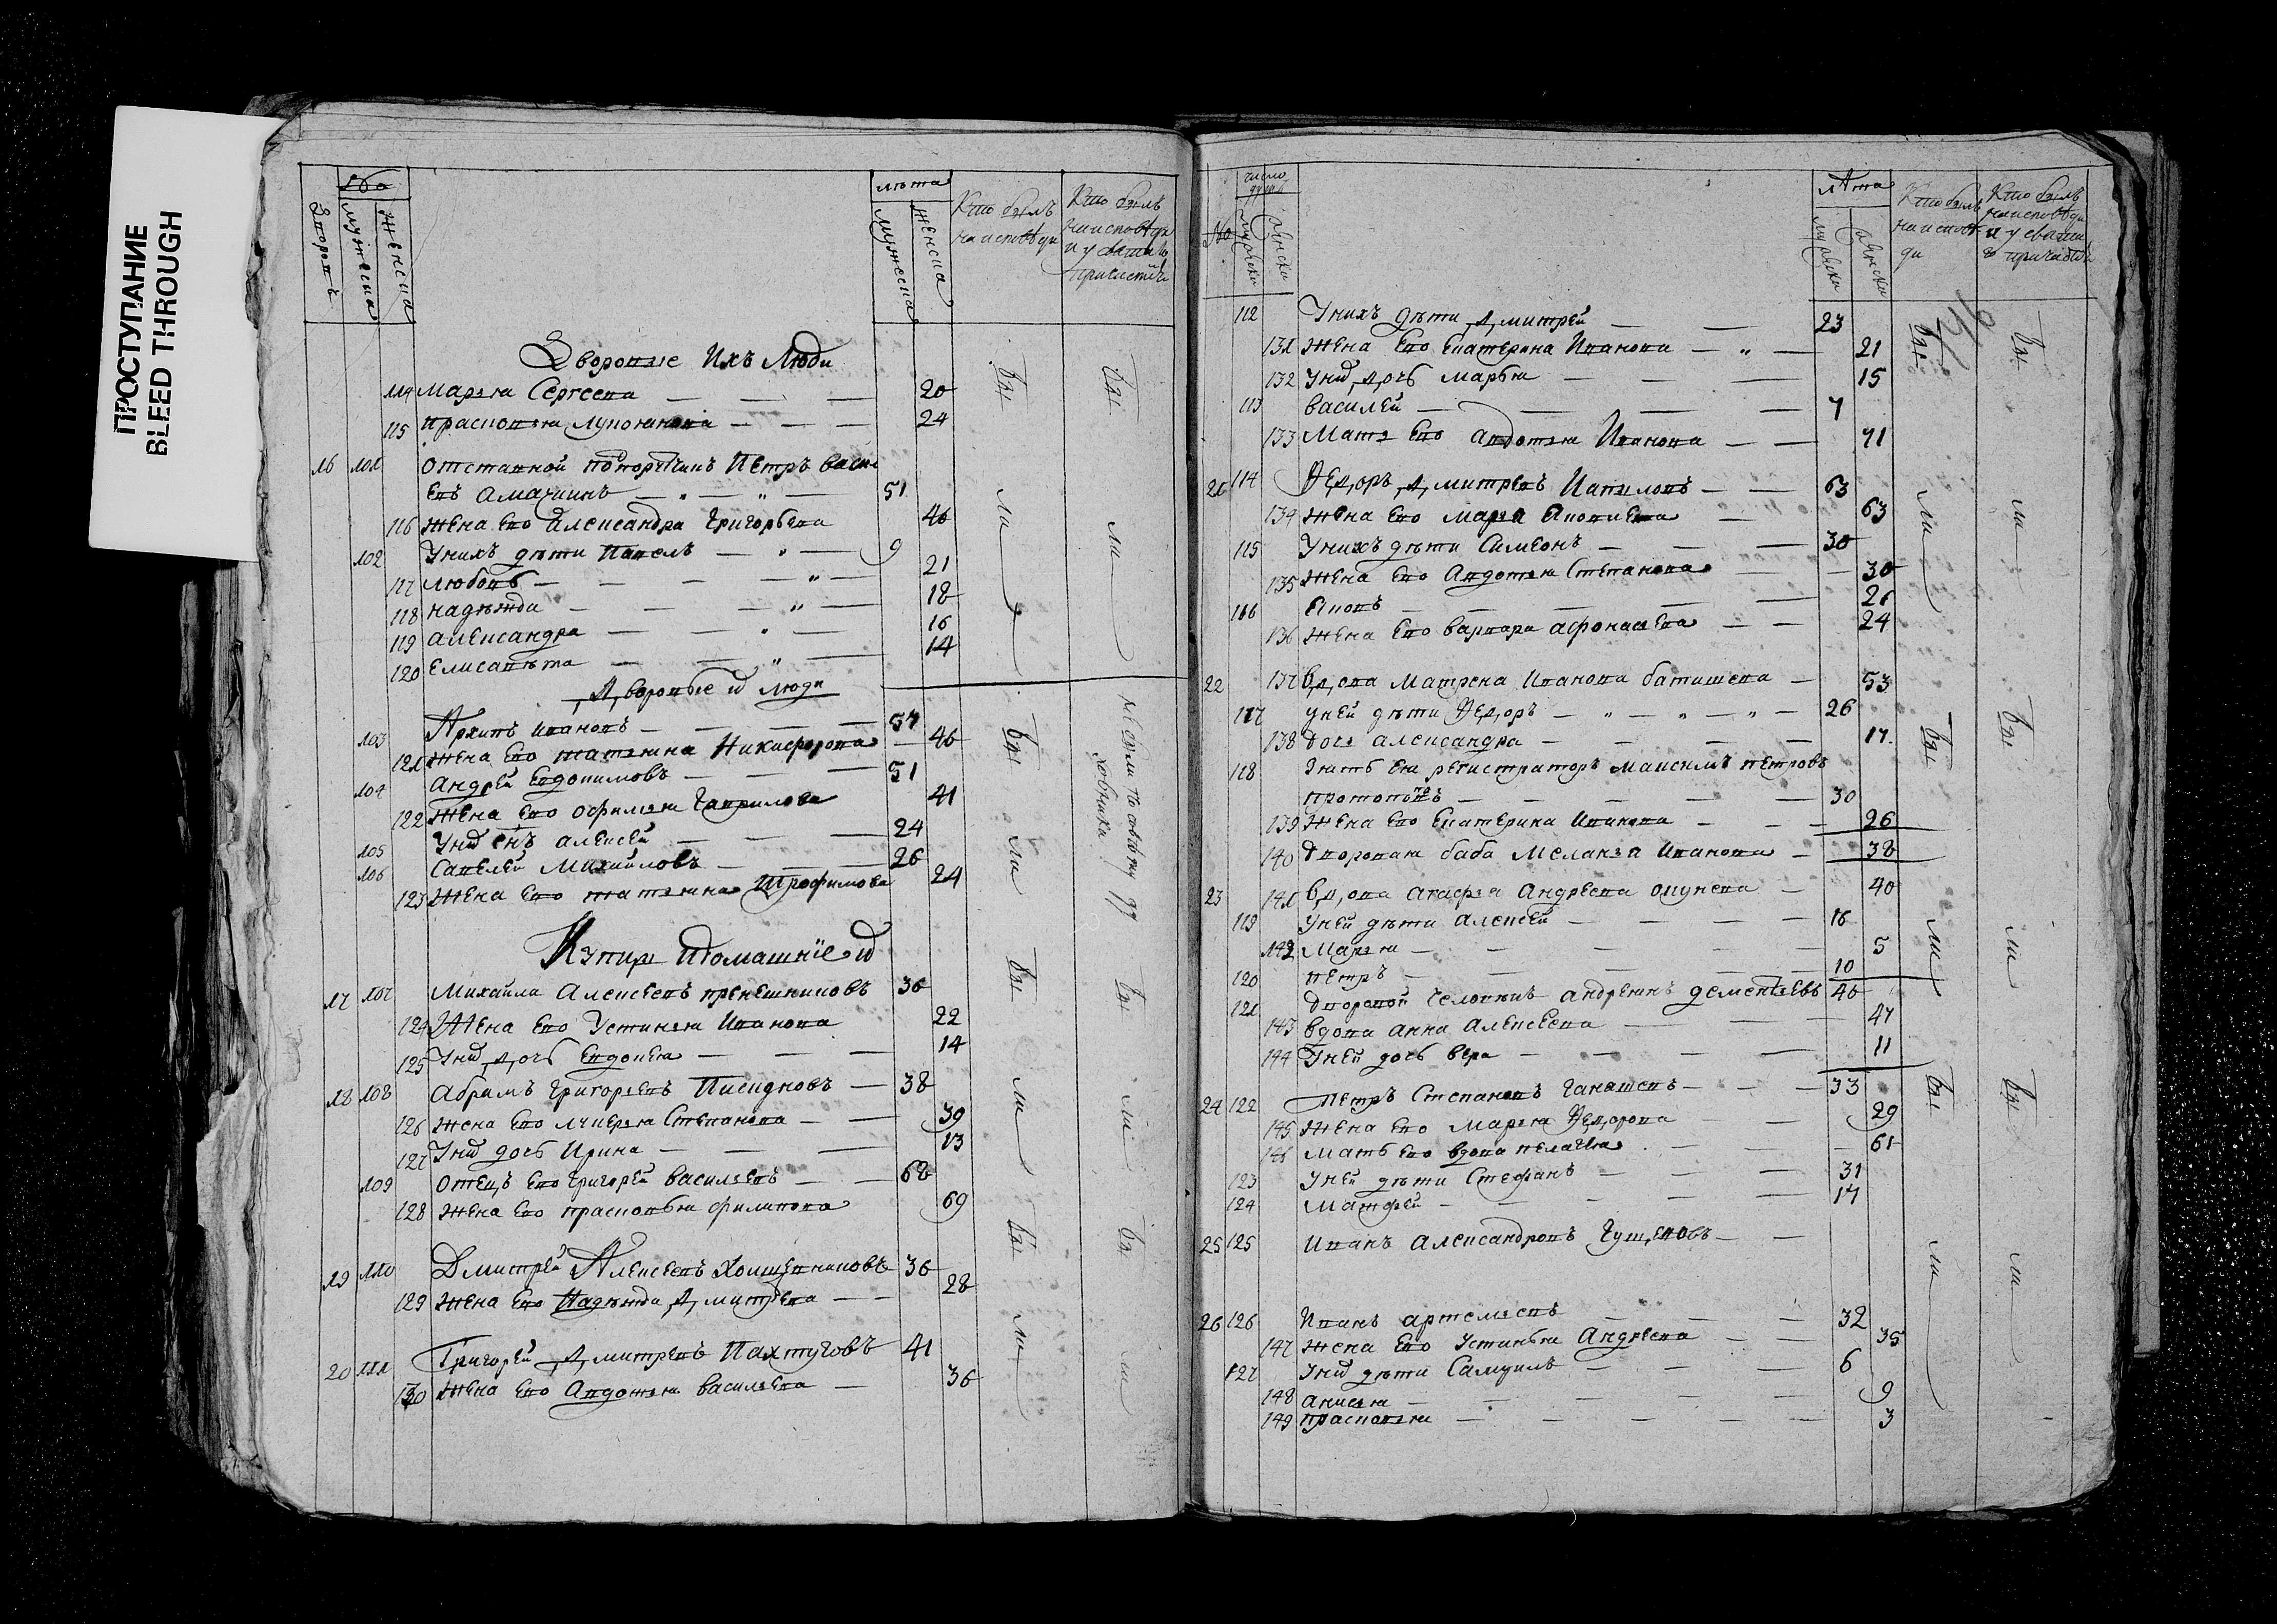 ПРОСТУПАНИЕ
BLEED THROUGH
№
Дворовъ
мужеска
женска
лѣта
мужеска
женска
Кто былъ
на исповѣди
Кто былъ
на исповѣди
и у святаго
причастія
Дворовые ихъ люди
114 Марья Сергеева 20
115 Прасковья 24
16 101 отставной подпоручикъ Петръ Васи
евъ 51
116 жена его Александра Григорьева 46
102 у нихъ дѣти Павелъ 9
117 Любовь 21
118 Надѣжда 18
119 Александра 16
120 Елисавѣта 14
Дворовые люди
103 Архипъ Ивановъ 57
121 жена его Татьяна Никифорова 46
104 Андрей Евдокимовъ 51
122 жена его Офимья Гаврилова 41
105 у них снъ Алексей 24
106 Савелей Михайловъ 26
123 жена его Татьяна Трофимова 24
Купцы и домашніе их
17 107 Михайла Алексеевъ 36
124 Жена его Устинья Иванова 22
125 у них дочь Евдокея 14
18 108 Абрамъ Григорьевъ 38
126 жена его Лукерья Степанова 39
127 у них дочь Ирина 13
109 отецъ его Григорей Васильевъ 68
128 жена его Прасковья Филипова 69
19 110 Дмитрей Алексеевъ Холщевниковъ 36
129 жена его Надѣжда Дмитрева 28
20 111 Григорей Дмитревъ Пахтусовъ 41
130 жена его Авдотья Васильева 36
бы
ли
бы
ли
бы
ли
бы
ли
№
число
душъ
мужеска
женска
лѣта
мужеска
женска
Кто былъ
на исповѣ
ди
Кто былъ
на исповѣди
и у святаго
причастія
112 У нихъ дѣти Дмитрей 23
131 жена его Екатерина Иванова 21
132 у них дочь Марья 15
113 Василей 7
133 Мать его Авдотья Иванова 71
21 114 Федоръ Дмитревъ 63
134 жена его Марья 63
115 У нихъ дѣти Симеонъ 30
135 жена его Авдотья Степанова 30
116 Яковъ 26
136 жена его Варвара Афонасьева 24
22 137 вдова Матрена Иванова Батишева 53
117 у ней дѣти Федоръ 26
138 дочь Александра 17
118 Зять ея регистраторъ Максимъ Петровъ
30
139 жена его Екатерина Иванова 26
140 дворовая баба Меланья Иванова 38
23 141 вдова Агафья Андреева 40
119 у ней дѣти Алексей 16
142 Марья 5
120 Петръ 10
121 дворовой человѣкъ Андреянъ Дементьевъ 46
143 вдова Анна Алексеева 47
144 у ней дочь Вера 11
24 122 Петръ Степановъ 33
145 жена его Марья Федорова 29
146 мать его вдова Пелагея 61
123 у ней дѣти Стефанъ 31
124 Матфей 17
25 125 Иванъ Александровъ
26 126 Иванъ Артемьевъ 32
147 жена его Устинья Андреева 35
127 у них дѣти Самуилъ 6
148 Анисья 9
149 Прасковья 3
бы
ли
бы
ли
бы
ли